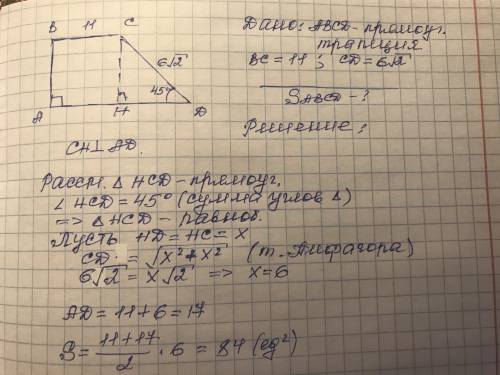 B 11 C
6√2
45°
A H D
Дано: ABCD - прямоуг.
трапиция
BC = 11 ; CD = 6√2
SABCD - ?
Решение:
CH⊥AD.
Рассм. △ HCD - прямоуг.
∠ HCD = 45° (сумма углов △)
=> △ HCD - равноб.
Пусть HD = HC = x
CD = √x² + x² (т. Пифагора)
6√2 = x√2 => x = 6
AD = 11 + 6 = 17
S = 11 + 17 / 2 · 6 = 84 (ед²)